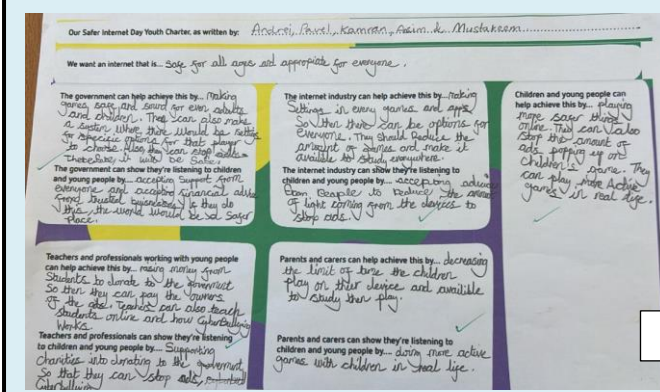 Our Safer Internet Day Youth Charter, as written by: Andrei, Pavel, Kamran, Asim & Mustakeem
We want an internet that is... Safe for all ages and appropiate for everyone.
The government can help achieve this by... Making
games safe and sound for even adults
and children. They can also make
a system where there would be settings
for specific options for that player
to choose. Also they can stop ads.
Therefore, it will be safe.
The government can show they're listening to
children and young people by... accepting support from
everyone and accepting financial advise
from trusted businesses. If they do
this, the world would be a safer
place.
The internet industry can help achieve this by... Making
Settings in every games and apps
So then there can be options for
everyone. They should Reduce the
amount of games and make it
available to study everywhere.
The internet industry can show they're listening to
children and young people by... accepting advice
from people to reduce the amount
of light coming from the devices to
stop ads.
Children and young people can
help achieve this by... playing
more safer things
online. This can also
stop the amount of
ads popping up on
children's game. They
can play more Active
games in real life.
Teachers and professionals working with young people
can help achieve this by... raising money from
Students to donate to the government
So then they can pay the owners
of the ads. Teachers can also teach
students online and how Cyberbullying
Works.
Teachers and professionals can show they're listening
to children and young people by... Supporting
Charities into donating to the government
So that they can stop ads,
Cyberbullying
Parents and carers can help achieve this by... decreasing
the limit of time the children
play on their device and availible
to study then play.
Parents and carers can show they're listening to
children and young people by... doing more active
games with children in real life.